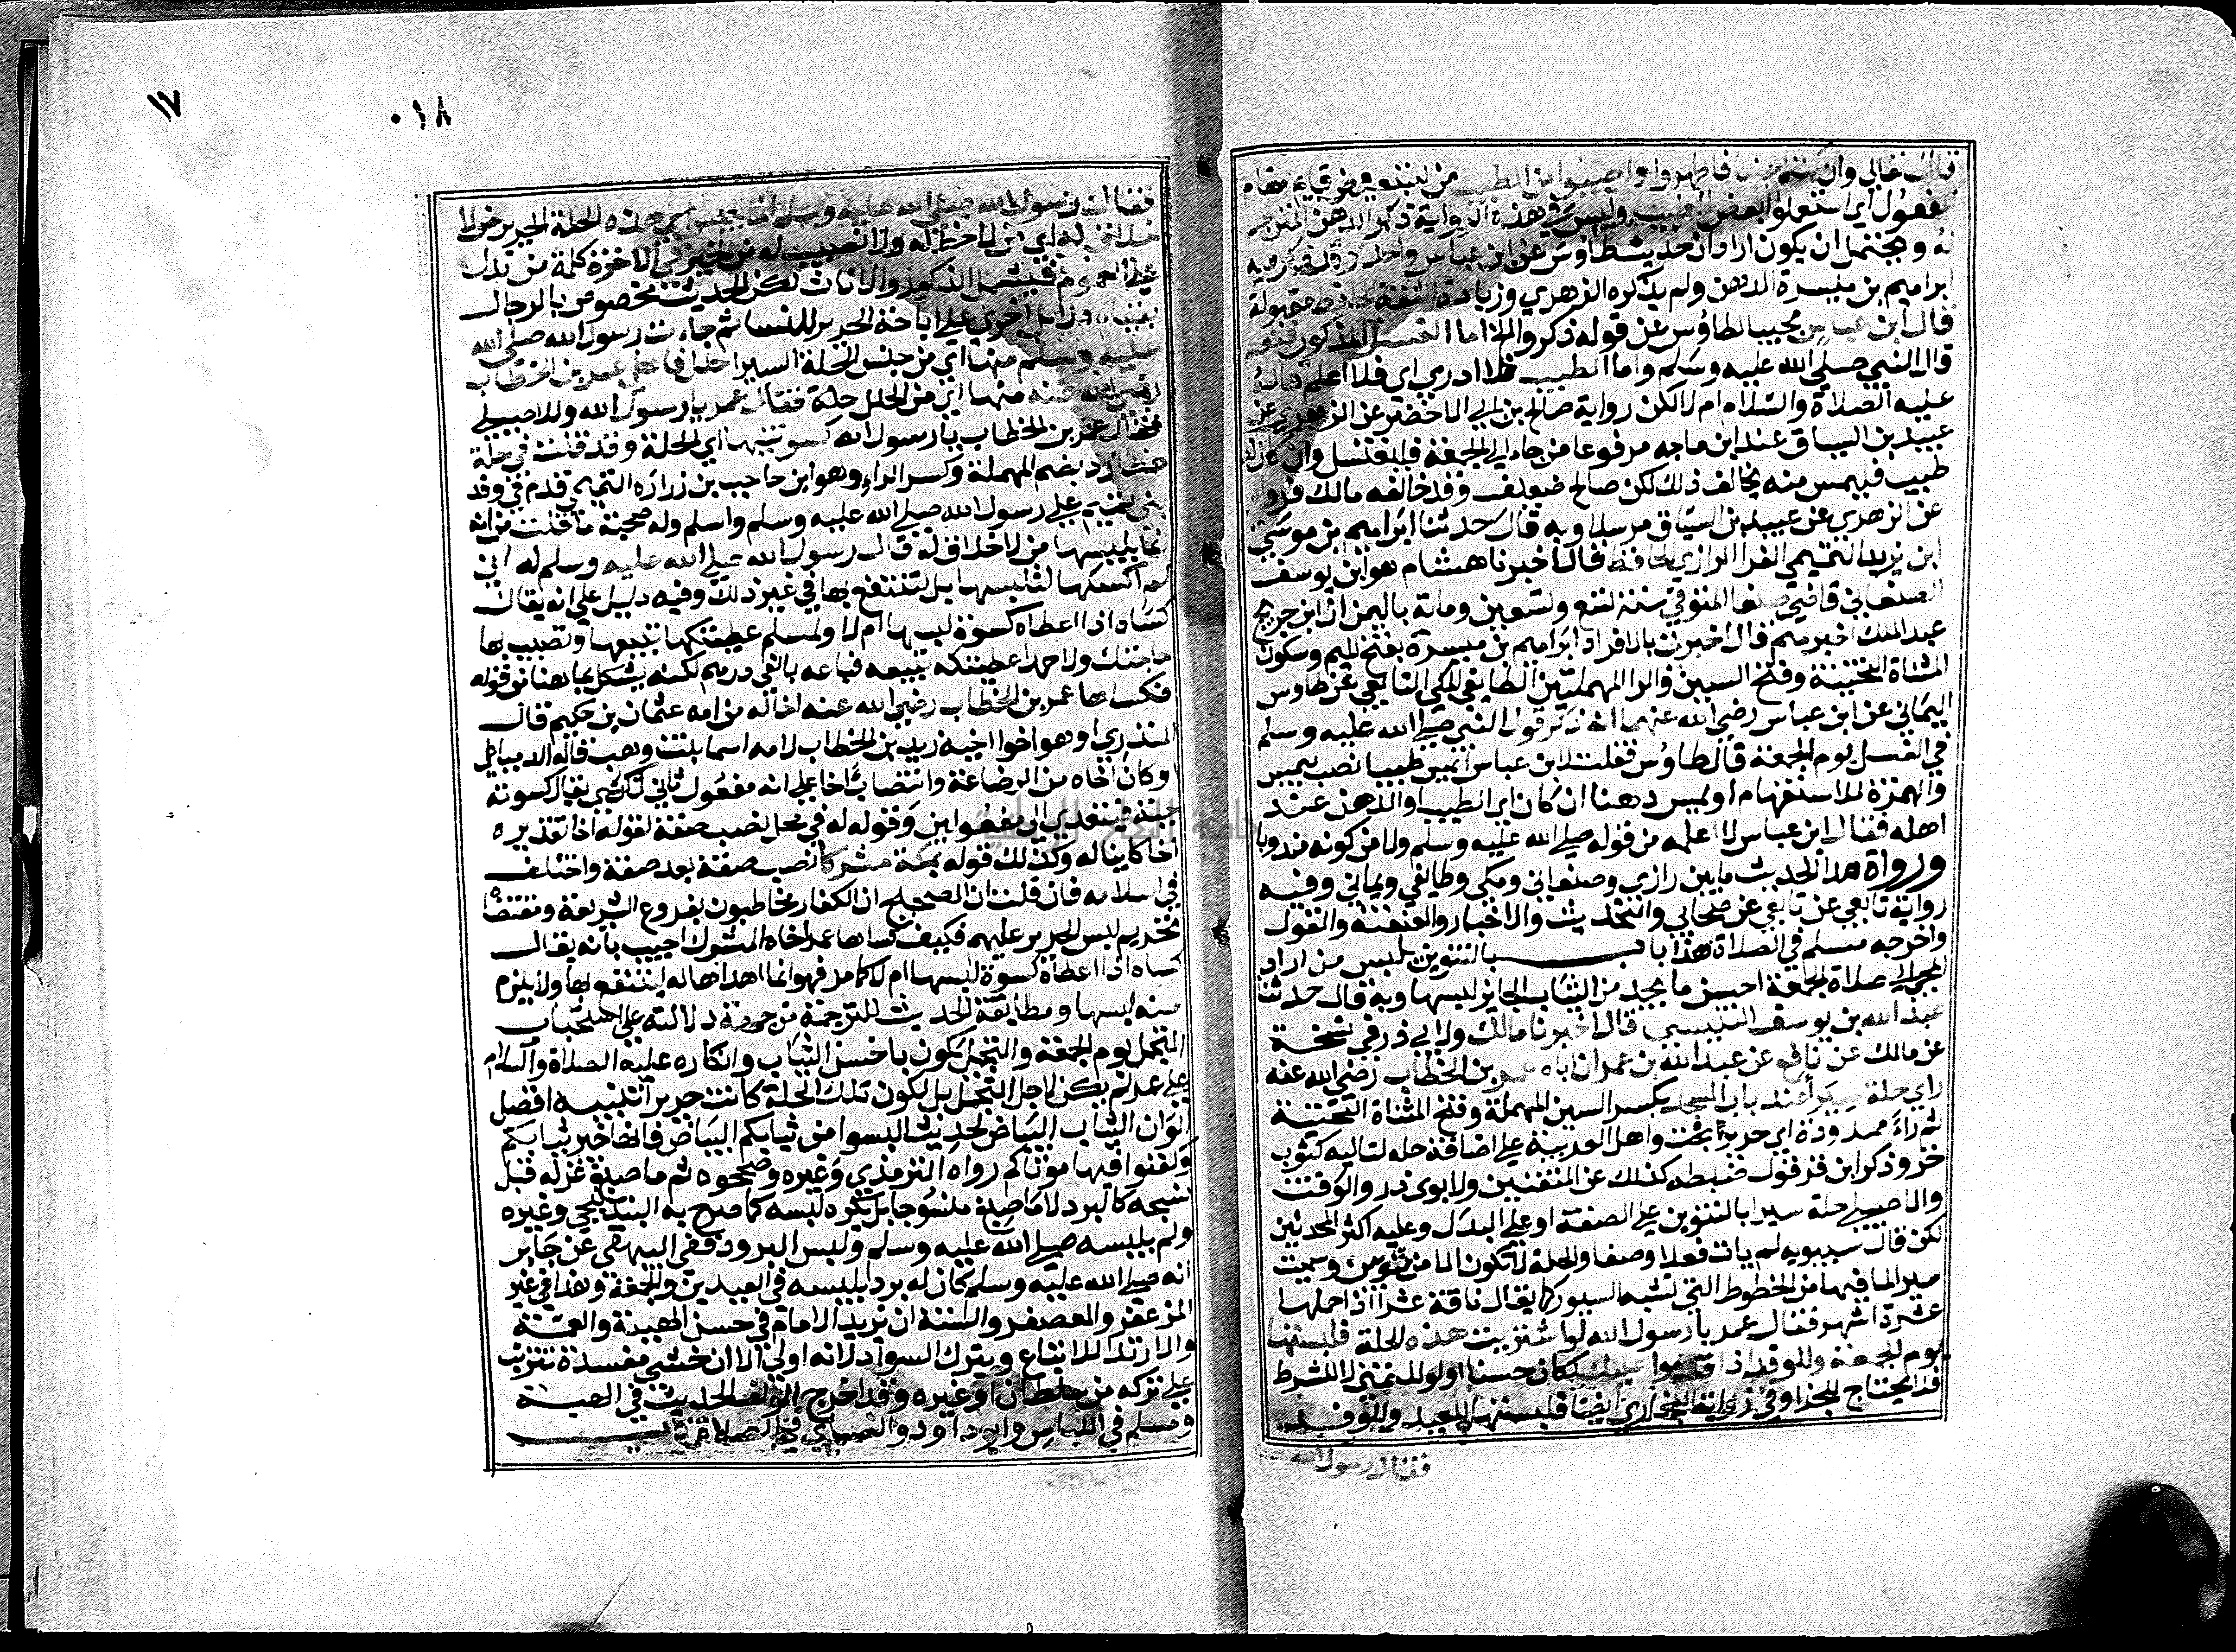 قال تعالى وان كنتم جنبا فاطهروا واصيبوا من الطيب من للتبعيض قايم مقام
المفعول اي استعملوا بعض الطيب وليس في هذه الرواية ذكر الدهن المترجم
له ويحتمل ان يكون اراد ان حديث طاوس عن ابن عباس واحد ذكر فيه
ابراهيم بن ميسرة الدهن ولم يذكره الزهري وزيادة الثقة الحافظ مقبولة
قال ابن عباس مجيبا لطاوس عن قوله ذكروا الخ اما الغسل المذكور فنعم
قال النبي صلي الله عليه وسلم واما الطيب فلا ادري اي فلا اعلم قاله
عليه الصلاة والسلام ام لا لكن رواية صالح بن ابي الاخضر عن الزهري عن
عبيد بن السباق عند ابن ماجه مرفوعا من جاء الي الجمعة فليغتسل وان كان له
طيب فليمس منه يخالف ذلك لكن صالح ضعيف وقد خالفه مالك فرواه
عن الزهري عن عبيد بن السباق مرسلا وبه قال حدثنا ابراهيم بن موسي
ابن يزيد التميمي الفرا الرازي الحافظ قال اخبرنا هشام هو ابن يوسف
الصنعاني قاضي صنعا المتوفي سنة تسع وتسعين وماية باليمن ان ابن جريج
عبد الملك اخبرهم قال اخبرني بالافراد ابراهيم بن ميسرة بفتح الميم وسكون
المثناة التحتية وفتح السين والرا المهملتين الطايفي المكي التابعي عن طاوس
اليماني عن ابن عباس رضي الله عنهما انه ذكر قول النبي صلي الله عليه وسلم
في الغسل يوم الجمعة قال طاوس فقلت لابن عباس ايمس طيبا نصب بيمس
والهمزة للاستفهام او يمس دهنا ان كان اي الطيب او الدهن عند
اهله فقال ابن عباس لا اعلمه من قوله صلي الله عليه وسلم ولا من كونه مندوبا
ورواة هذا الحديث ما بين رازي وصنعاني ومكي وطايفي ويماني وفيه
رواية تابعي عن تابعي عن صحابي والتحديث والاخبار والعنعنة والقول
واخرجه مسلم في الصلاة هذا باب بالتنوين يلبس من اراد
المجي الي صلاة الجمعة احسن ما يجد من الثياب الجايز لبسها وبه قال حدثنا
عبد الله بن يوسف التنيسي قال اخبرنا مالك ولابي ذر في نسخة
عن مالك عن نافع عن عبد الله بن عمر ان اباه عمر بن الخطاب رضي الله عنه
راي حلة سيراء عند باب المسجد بكسر السين المهملة وفتح المثناة التحتية
ثم راء ممدودة اي حرير بحت واهل العربية علي اضافة حلة لتاليه كثوب
خز وذكر ابن قرقول ضبطه كذلك عن المتقنين ولابوي ذر والوقت
والاصيلي حلة سيرا بالتنوين علي الصفة او علي البدل وعليه اكثر المحدثين
لكن قال سيبويه لم يات فعلا وصفا والحلة لا تكون الا من ثوبين وسميت
سيرا لما فيها من الخطوط التي تشبه السيور كما يقال ناقة عشرا اذا حملها
عشرة اشهر فقال عمر يا رسول الله لو اشتريت هذه الحلة فلبستها
يوم الجمعة وللوفد اذا قدموا عليك لكان حسنا او لو للتمني لا للشرط
فلا يحتاج للجزا وفي رواية البخاري ايضا فلبستها للعيد وللوفد
فقال رسول الله
١٧
٠١٨
فقال رسول الله صلي الله عليه وسلم انما يلبس اي هذه الحلة الحرير من لا
خلاق له اي من لا حظ له ولا نصيب له من الخير في الاخرة كلمة من تدل
علي العموم فيشمل الذكور والاناث لكن الحديث مخصوص بالرجال
بدلايل اخري علي اباحة الحرير للنسا ثم جاءت رسول الله صلي الله
عليه وسلم منها اي من جنس الحلة السيرا حلل فاعطي عمر بن الخطاب
رضي الله عنه منها اي من الحلل حلة فقال عمر يا رسول الله وللاصيلي
فقال عمر بن الخطاب يا رسول الله كسوتنيها اي الحلة وقد قلت في حلة
عطارد بضم المهملة وكسر الراء وهو ابن حاجب بن زرارة التميمي قدم في وفد
بني تميم علي رسول الله صلي الله عليه وسلم واسلم وله صحبة ما قلت من انه
انما يلبسها من لا خلاق له قال رسول الله صلي الله عليه وسلم له اني
لم اكسكها لتلبسها بل لتنتفع بها في غير ذلك وفيه دليل علي انه يقال
كساه اذا اعطاه كسوة لبسها ام لا ولمسلم عطيتكها تبيعها وتصيب بها
حاجتك ولاحمد اعطيتكه تبيعه فباعه بالفي درهم لكنه يشكل بما هنا من قوله
فكساها عمر بن الخطاب رضي الله عنه اخا له من امه عثمان بن حكيم قال
المنذري او هو اخو اخيه زيد بن الخطاب لامه اسما بنت وهب قاله الدمياطي
او كان اخاه من الرضاعة وانتصاب اخا علي انه مفعول ثاني لكسي يقال كسوته
جبة فيتعدي الي مفعولين وقوله له في محل نصب صفة لقوله اخا تقديره
اخا كاينا له وكذلك قوله بمكة مشركا نصب صفة بعد صفة واختلف
في اسلامه فان قلت ان الصحيح ان الكفار مخاطبون بفروع الشريعة ومقتضاه
تحريم لبس الحرير عليهم فكيف كساها عمر اخاه المشرك اجيب بانه يقال
كساه اذا اعطاه كسوة لبسها ام لا كما مر فهو انما اهداها له لينتفع بها ولا يلزم
منه لبسها ومطابقة الحديث للترجمة من جهة دلالته علي استحباب
التجمل يوم الجمعة والتجمل يكون باحسن الثياب وانكاره عليه الصلاة والسلام
علي عمر لم يكن لاجل التجمل بل لكون تلك الحلة كانت حريرا تنبيه افضل
الوان الثياب البياض لحديث البسوا من ثيابكم البياض فانها خير ثيابكم
وكفنوا فيها موتاكم رواه الترمذي وغيره وصححوه ثم ما صبغ غزله قبل
نسجه كالبرد لا ما صبغ منسوجا بل يكره لبسه كما صرح به البندنيجي وغيره
ولم يلبسه صلي الله عليه وسلم ولبس البرود ففي البيهقي عن جابر
انه صلي الله عليه وسلم كان له برد يلبسه في العيدين والجمعة وهذا في غير
المزعفر والمعصفر والسنة ان يزيد الامام في حسن الهيئة والعمة
والارتدا للاتباع ويترك السواد لانه اولي الا ان خشي مفسدة تترتب
علي تركه من سلطان او غيره وقد اخرج المولف الحديث في الهبة
ومسلم في اللباس وابو داود والنسائي في الصلاة باب